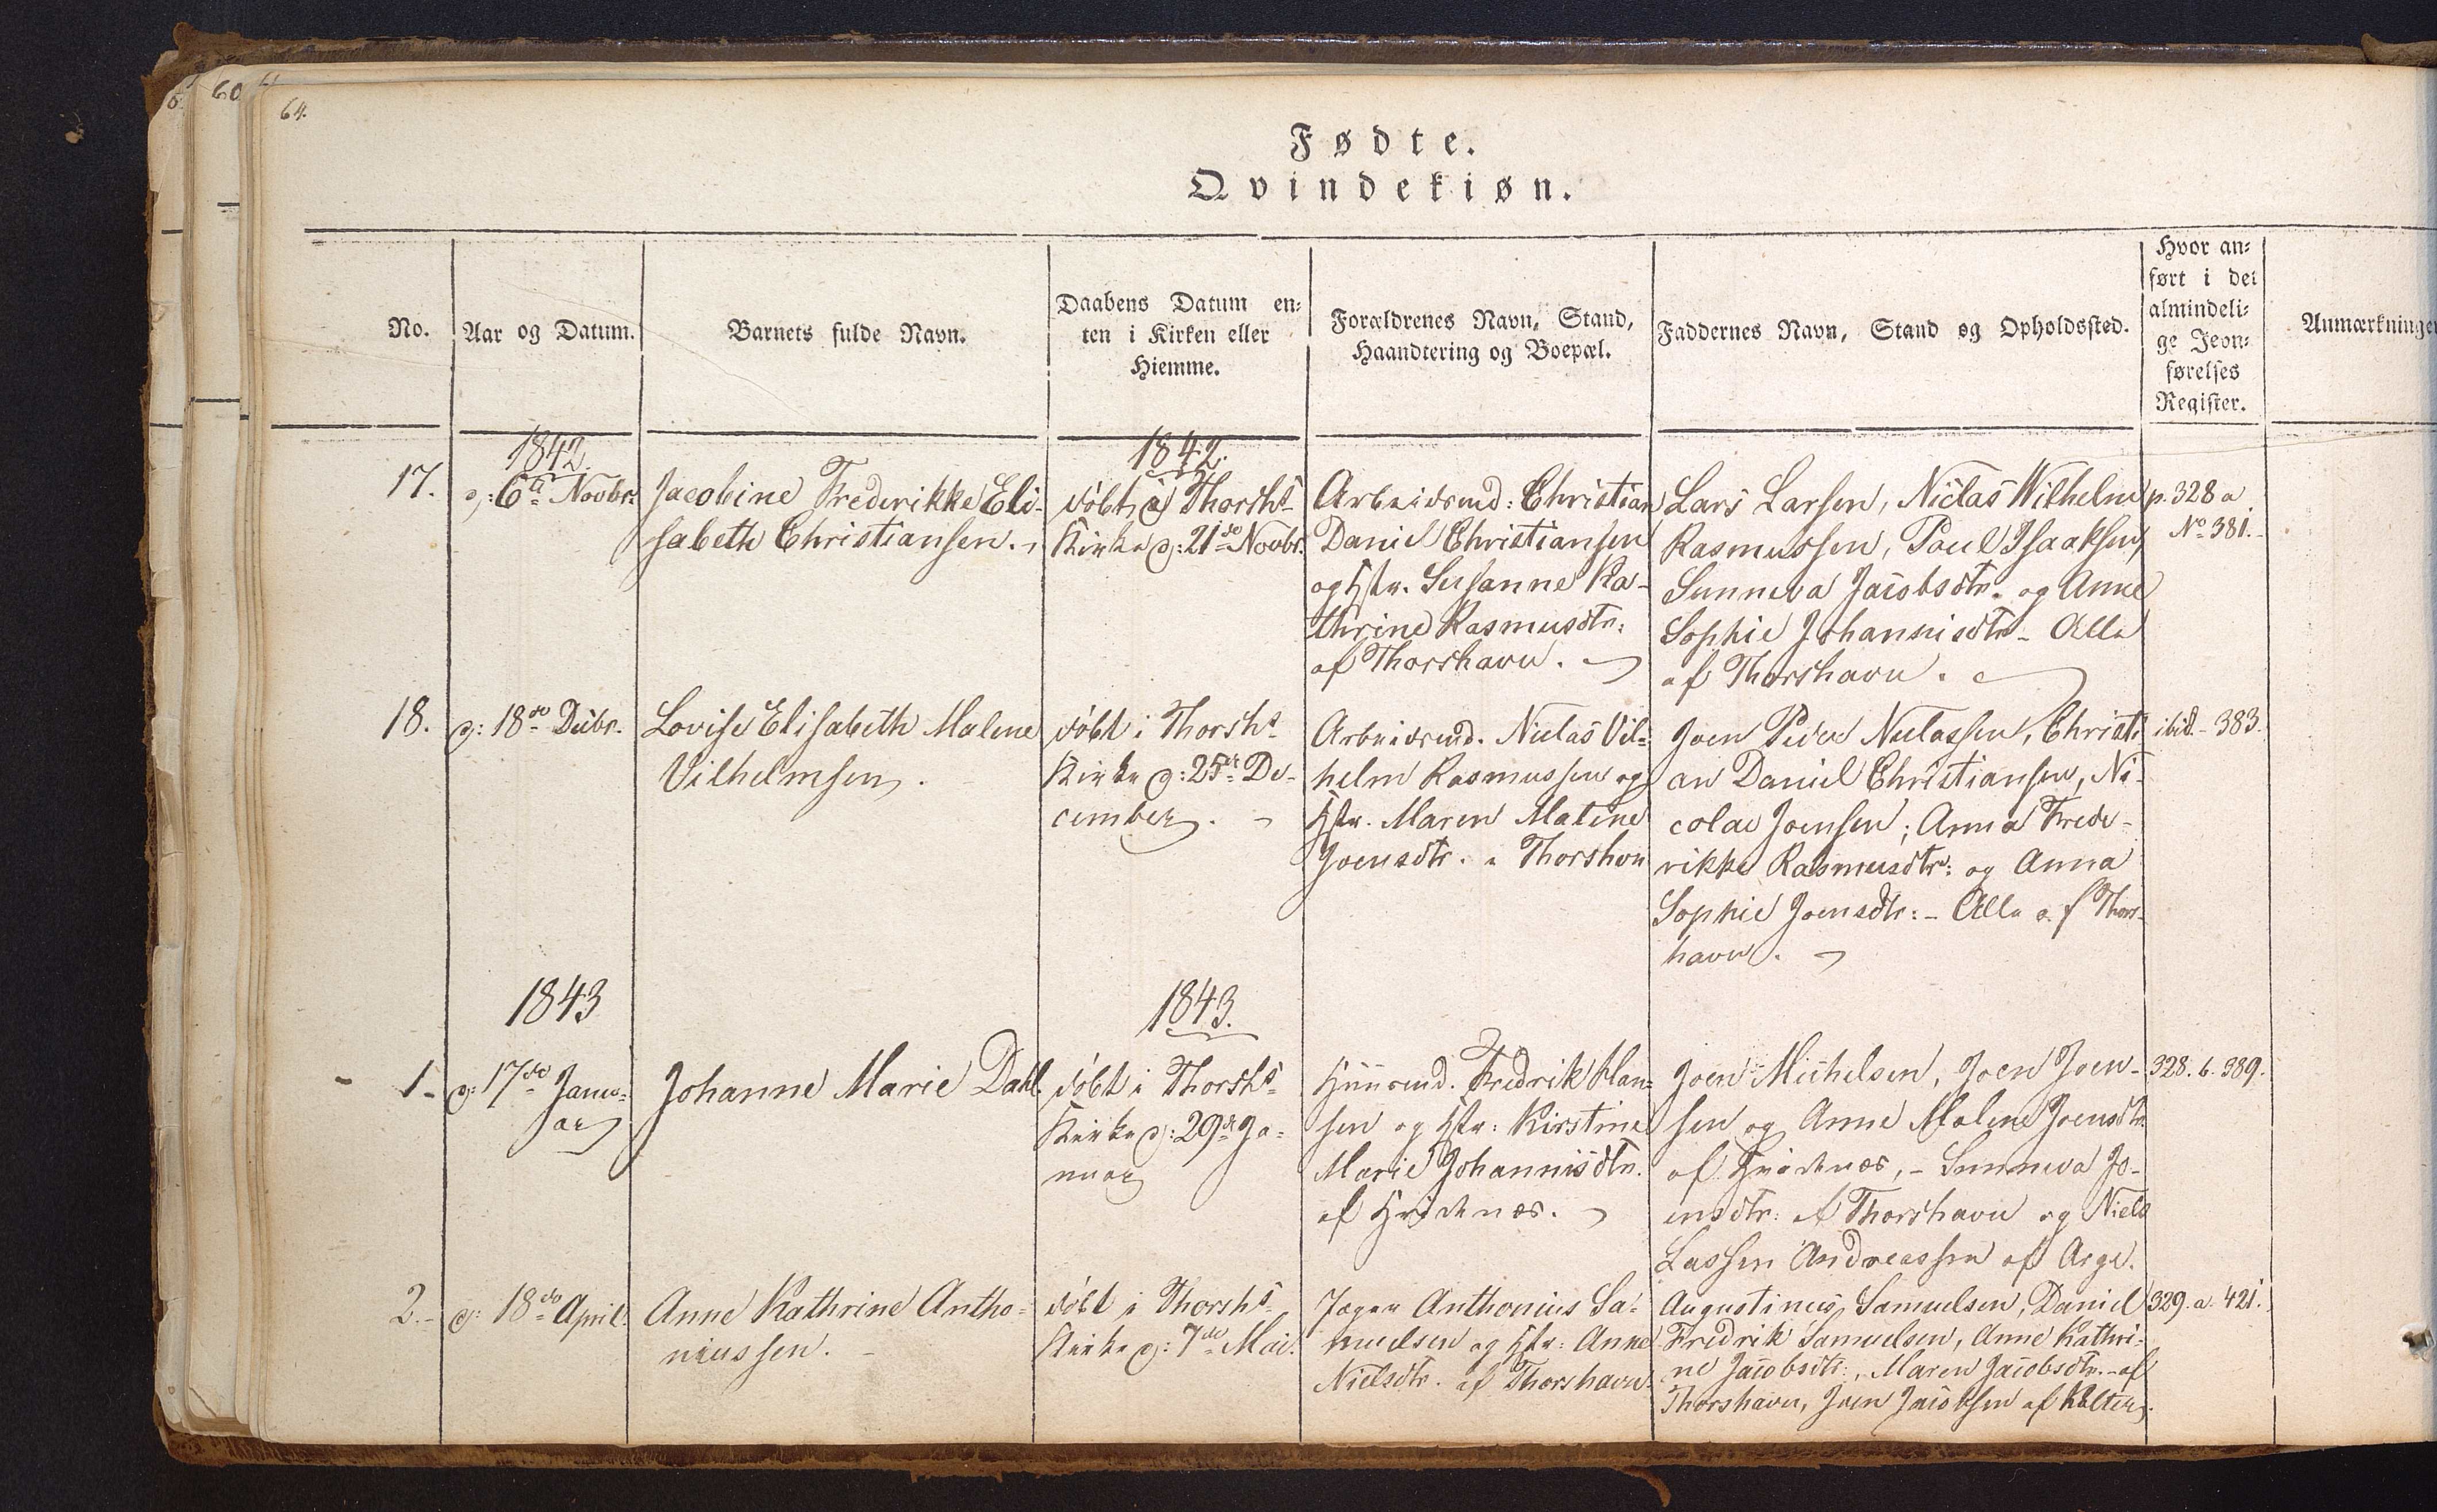 64.
60
Fødte.
Qvindekiøn.
No.
Aar og Datum.
Barnets fulde Navn.
Daabens Datum en-
ten i Kirken eller
Hiemme.
Forældrenes Navn, Stand,
Haandtering og Boepæl.
Faddernes Navn, Stand og Opholdssted.
Hvor an-
ført i det
almindeli-
ge Jevn-
førelses
Register.
Anmærkninge
1842.
17.
d: 6te Novbr.
Jacobine Frederikke Eli-
sabeth Christiansen.
1842.
döbt i Thorshs
Kirke d: 21de Novbr.
Arbeidsmd: Christian
Daniel Christiansen
og Hstr. Susanne Ka-
thrine Rasmusdtr:
af Thorshavn.
Lars Larsen, Niclas Wilhelm
Rasmussen, Poul Isaaksen,
Sunneva Jacobsdtr. og Anne
Sophie Johannisdtr - Alle
af Thorshavn.
p. 328 a
No 381.
18.
d: 18de Decbr.
Lovise Elisabeth Malene
Vilhelmsen.
döbt i Thorshs
Kirke d: 25de De-
cember.
Arbeidsmd. Niclas Vil-
helm Rasmussen og
Hstr. Maren Malene
Joensdtr. a Thorshvn
Joen Peder Niclassen, Christi
an Daniel Christiansen, Ni-
colai Joensen; Anna Frede-
rikke Rasmusdtr: og Anna
Sophie Joensdtr: - Alle af Thors-
havn.
ibid. - 383.
1843
1.
d: 17de Janu-
ar
Johanne Marie Dahl.
1843.
döbt i Thorshs
Kirke d: 29de Ja-
nuar
Huusmd. Fredrik Han-
sen og Hstr: Kirstine
Marie Johannisdtr.
af Hvidenæs.
Joen Michelsen, Joen Joen-
sen og Anne Malene Joensdtr
af Hvidenæs, - Sunneva Jo-
ensdtr: af Thorshavn og Niels
Lassen Andreassen af Arge.
328. b. 389.
2.
d: 18de April.
Anne Kathrine Antho-
niussen.
döbt i Thorshs
Kirke d: 7de Mai.
Jæger Anthonius Sa-
muelsen og Hstr: Anne
Nielsdtr. af Thorshavn.
Augustinus Samuelsen, Daniel
Fredrik Samuelsen, Anne Kathri-
ne Jacobsdtr., Maren Jacobsdtr. - af
Thorshavn, Joen Jacobsen af Kolter.
329. a. 421.